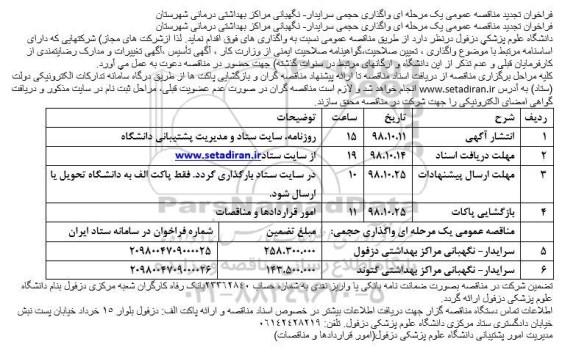 فراخوان تجدید مناقصه عمومی یک مرحله ای واگذاری حجمی سرایدار- نگهبانی مراکز بهداشتی درمانی شهرستان
فراخوان تجدید مناقصه عمومی یک مرحله ای واگذاری حجمی سرایدار- نگهبانی مراکز بهداشتی درمانی شهرستان
دانشگاه علوم پزشکی دزفول درنظر دارد از طریق مناقصه عمومی نسبت به واگذاری های فوق اقدام نماید. لذا ازشرکت های مجاز) شرکتهایی که دارای
اساسنامه مرتبط با موضوع واگذاری ، تعیین صلاحیت،گواهینامه صلاحیت ایمنی از وزارت کار ، آگهی تأسیس ،آگهی تغییرات و مدارک رضایتمندی از
کارفرمایان قبلی و عدم تذکر از این دانشگاه و ارگانهای مرتبط در سنوات گذشته) جهت حضور در مناقصه دعوت به عمل می آورد.
کلیه مراحل برگزاری مناقصه از دریافت اسناد مناقصه تا ارائه پیشنهاد مناقصه گران و بازگشایی پاکت ها از طریق درگاه سامانه تدارکات الکترونیکی دولت
(ستاد) به آدرس www.setadiran.ir انجام خواهد شد و لازم است مناقصه گران در صورت عدم عضویت قبلی، مراحل ثبت نام در سایت مذکور و دریافت
گواهی امضای الکترونیکی را جهت شرکت در مناقصه محقق سازند.
ردیف شرح تاریخ ساعت توضیحات
۱ انتشار آگهی ۹۸.۱۰.۱۱ ۱۵ روزنامه، سایت ستاد و مدیریت پشتیبانی دانشگاه
۲ مهلت دریافت اسناد ۹۸.۱۰.۱۴ ۱۹ از سایت ستاد www.setadiran.ir
۳ مهلت ارسال پیشنهادات ۹۸.۱۰.۲۵ ۱۰ در سایت ستاد بارگذاری گردد. فقط پاکت الف به دانشگاه تحویل یا
ارسال شود.
۴ بازگشایی پاکات ۹۸.۱۰.۲۵ ۱۱ امور قراردادها و مناقصات
مناقصه عمومی یک مرحله ای واگذاری حجمی: مبلغ تضمین شماره فراخوان در سامانه ستاد ایران
۵ سرایدار- نگهبانی مراکز بهداشتی دزفول ۲۵۸.۳۰۰.۰۰۰ ۲۰۹۸۰۰۴۷۰۹۰۰۰۰۲۵
۶ سرایدار- نگهبانی مراکز بهداشتی گتوند ۱۴۳.۵۰۰.۰۰۰ ۲۰۹۸۰۰۴۷۰۹۰۰۰۰۲۶
تضمین شرکت در مناقصه بصورت ضمانت نامه بانکی یا واریز نقدی به شماره حساب ۲۳۳۶۲۸۴۰بانک رفاه کارگران شعبه مرکزی دزفول بنام دانشگاه
علوم پزشکی دزفول ارائه گردد.
اطلاعات تماس دستگاه مناقصه گزار جهت دریافت اطلاعات بیشتر در خصوص اسناد مناقصه و ارائه پاکت الف: دزفول بلوار ۱۵ خرداد خیابان پست نبش
خیابان دادگستری ستاد مرکزی دانشگاه علوم پزشکی دزفول. تلفن: ۰۶۱۴۲۴۲۸۲۱۹
مدیریت امور پشتیبانی دانشگاه علوم پزشکی دزفول(امور قراردادها و مناقصات)